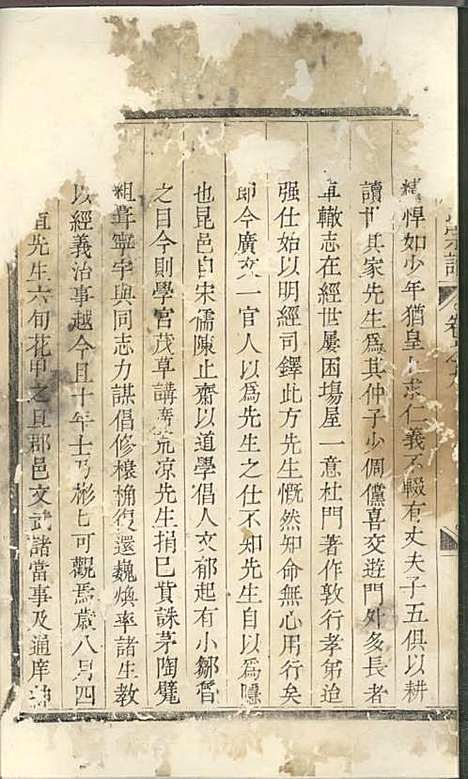 宗譜 卷之
悍如少年猶皇皇求仁義不輟有丈夫子五俱以耕
讀世其家先生為其仲子少倜儻喜交遊門外多長者
車轍志在經世屢困場屋一意杜門著作敦行孝弟迨
强仕始以明經司鐸此方先生慨然知命無心用行矣
即今廣文一官人以為先生之仕不知先生自以為隱
也昆邑自宋儒陳止齋以道學倡人文郁起有小鄒魯
之目今則學宮茂草講席荒凉先生捐已貲誅茅陶甓
粗葺寧宇與同志力謀倡修榱桷復還巍煥率諸生教
以經義治事越今且十年士乃彬七可觀焉歲八月四
直先生六旬花甲之旦郡邑文武諸當事及通庠紳